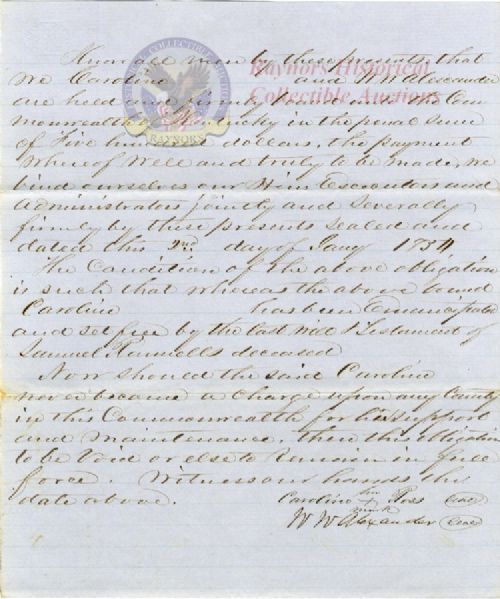 Know all men by these presents that
We Caroline and W W Alexander
are held and firmly bound unto the Com
monwealth of Kentucky in the penal sum
of Five hundred dollars, the payment
Whereof Well and truly to be made, we
bind ourselves our Heirs Executors and
Administrators jointly and severally
firmly by these presents sealed and
dated this 2nd day of Jany 1854
The Condition of the above obligation
is such that whereas the above bound
Caroline has been Emancipated
and set free by the last will & Testament of
Samuel deceased
Now should the said Caroline
never became a Charge upon any County
in this Commonwealth for his support
and maintenance, then this obligation
to be Void or else to remain in full
force. Witness our hands the
date above.
Caroline her Ross Seal
mark
W W Alexander Seal
Raynors Historical
Collectible Auctions
RAYNORS